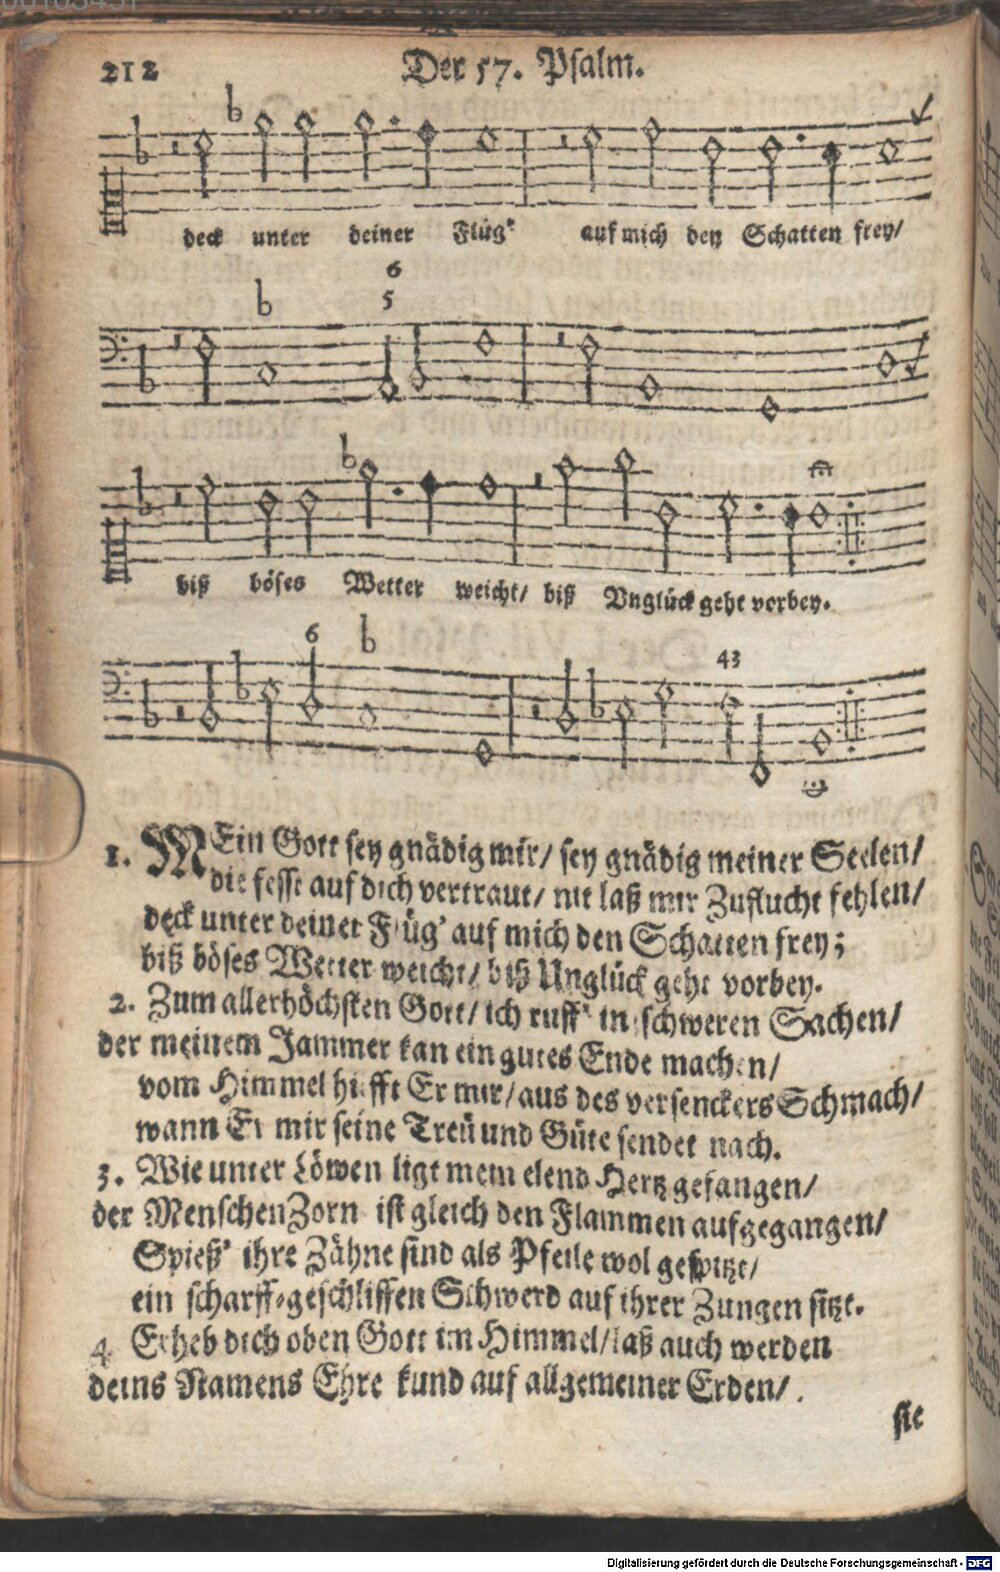 212
Der 57. Psalm.
deck unter deiner Flüg' auf mich den Schatten frey/
6
5
biß böses Wetter weicht/ biß Unglück geht vorbey.
6
43
1. MEin Gott sey gnädig mir/ sey gnädig meiner Seelen/
die fesst auf dich vertraut/ nit laß mir Zuflucht fehlen/
deck unter deiner Flüg' auf mich den Schatten frey;
biß böses Wetter weicht/ biß Unglück geht vorbey.
2. Zum allerhöchsten Gott/ ich ruff' in schweren Sachen/
der meinem Jammer kan ein gutes Ende machen/
vom Himmel hilfft Er mir/ aus des versenckers Schmach/
wann Er mir seine Treü und Güte sendet nach.
3. Wie unter Löwen ligt mein elend Hertz gefangen/
der Menschen Zorn ist gleich den Flammen aufgegangen/
Spieß' ihre Zähne sind als Pfeile wol gespitzt/
ein scharff-geschliffen Schwerd auf ihrer Zungen sitzt.
4 Erheb dich oben Gott im Himmel/ laß auch werden
deins Namens Ehre kund auf allgemeiner Erden/
sie
Digitalisierung gefördert durch die Deutsche Forschungsgemeinschaft - DFG